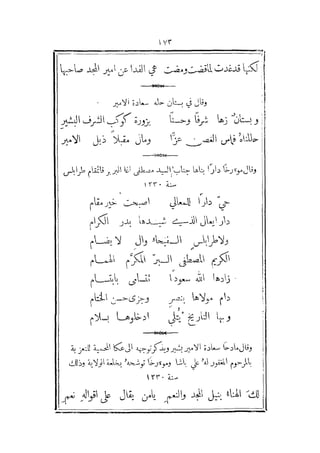 ١٧٣
لكنها قد غدت لما قضت ومضت في الفدا عن امير المجد صاحبها
وقال في بستان حله سعادة الامير
وبستان زها شرفًا وحسنًا بزورة كوكب الشرف البشير
فماس الغصن عزًّا ومال مقبلًا ذيل الامير
وقال مؤرخًا دارًا بناها جناب السيد مصطفى اغا البربر قائمقام طرابلس
سنة ١٢٣٠
حيّ دارًا للمعالي اصبحت خير مقام
دار ايعال الذي شيدها بدر الكرام
ولاطرابلس الفيحاء وال لا يضام
الكريم المصطفى البرّ المكرّم الهمام
زادها الله سعودًا تتسامى بابتسام
دام مولاها بنصرٍ وجزي حسن الختام
وبها التاريخ يُتلى ادخلوها بسلام
وقال مادحًا سعادة الامير بشير ويذكر توجيهه الى عكا المحمية للتعزية
بالمرحوم المغفور له علي باشا ومؤرخًا توشحه بخلعة الولاية وذلك
سنة ١٢٣٠
لك الهناء بنيل المجد والنعم يا من يقال على اقواله نعم